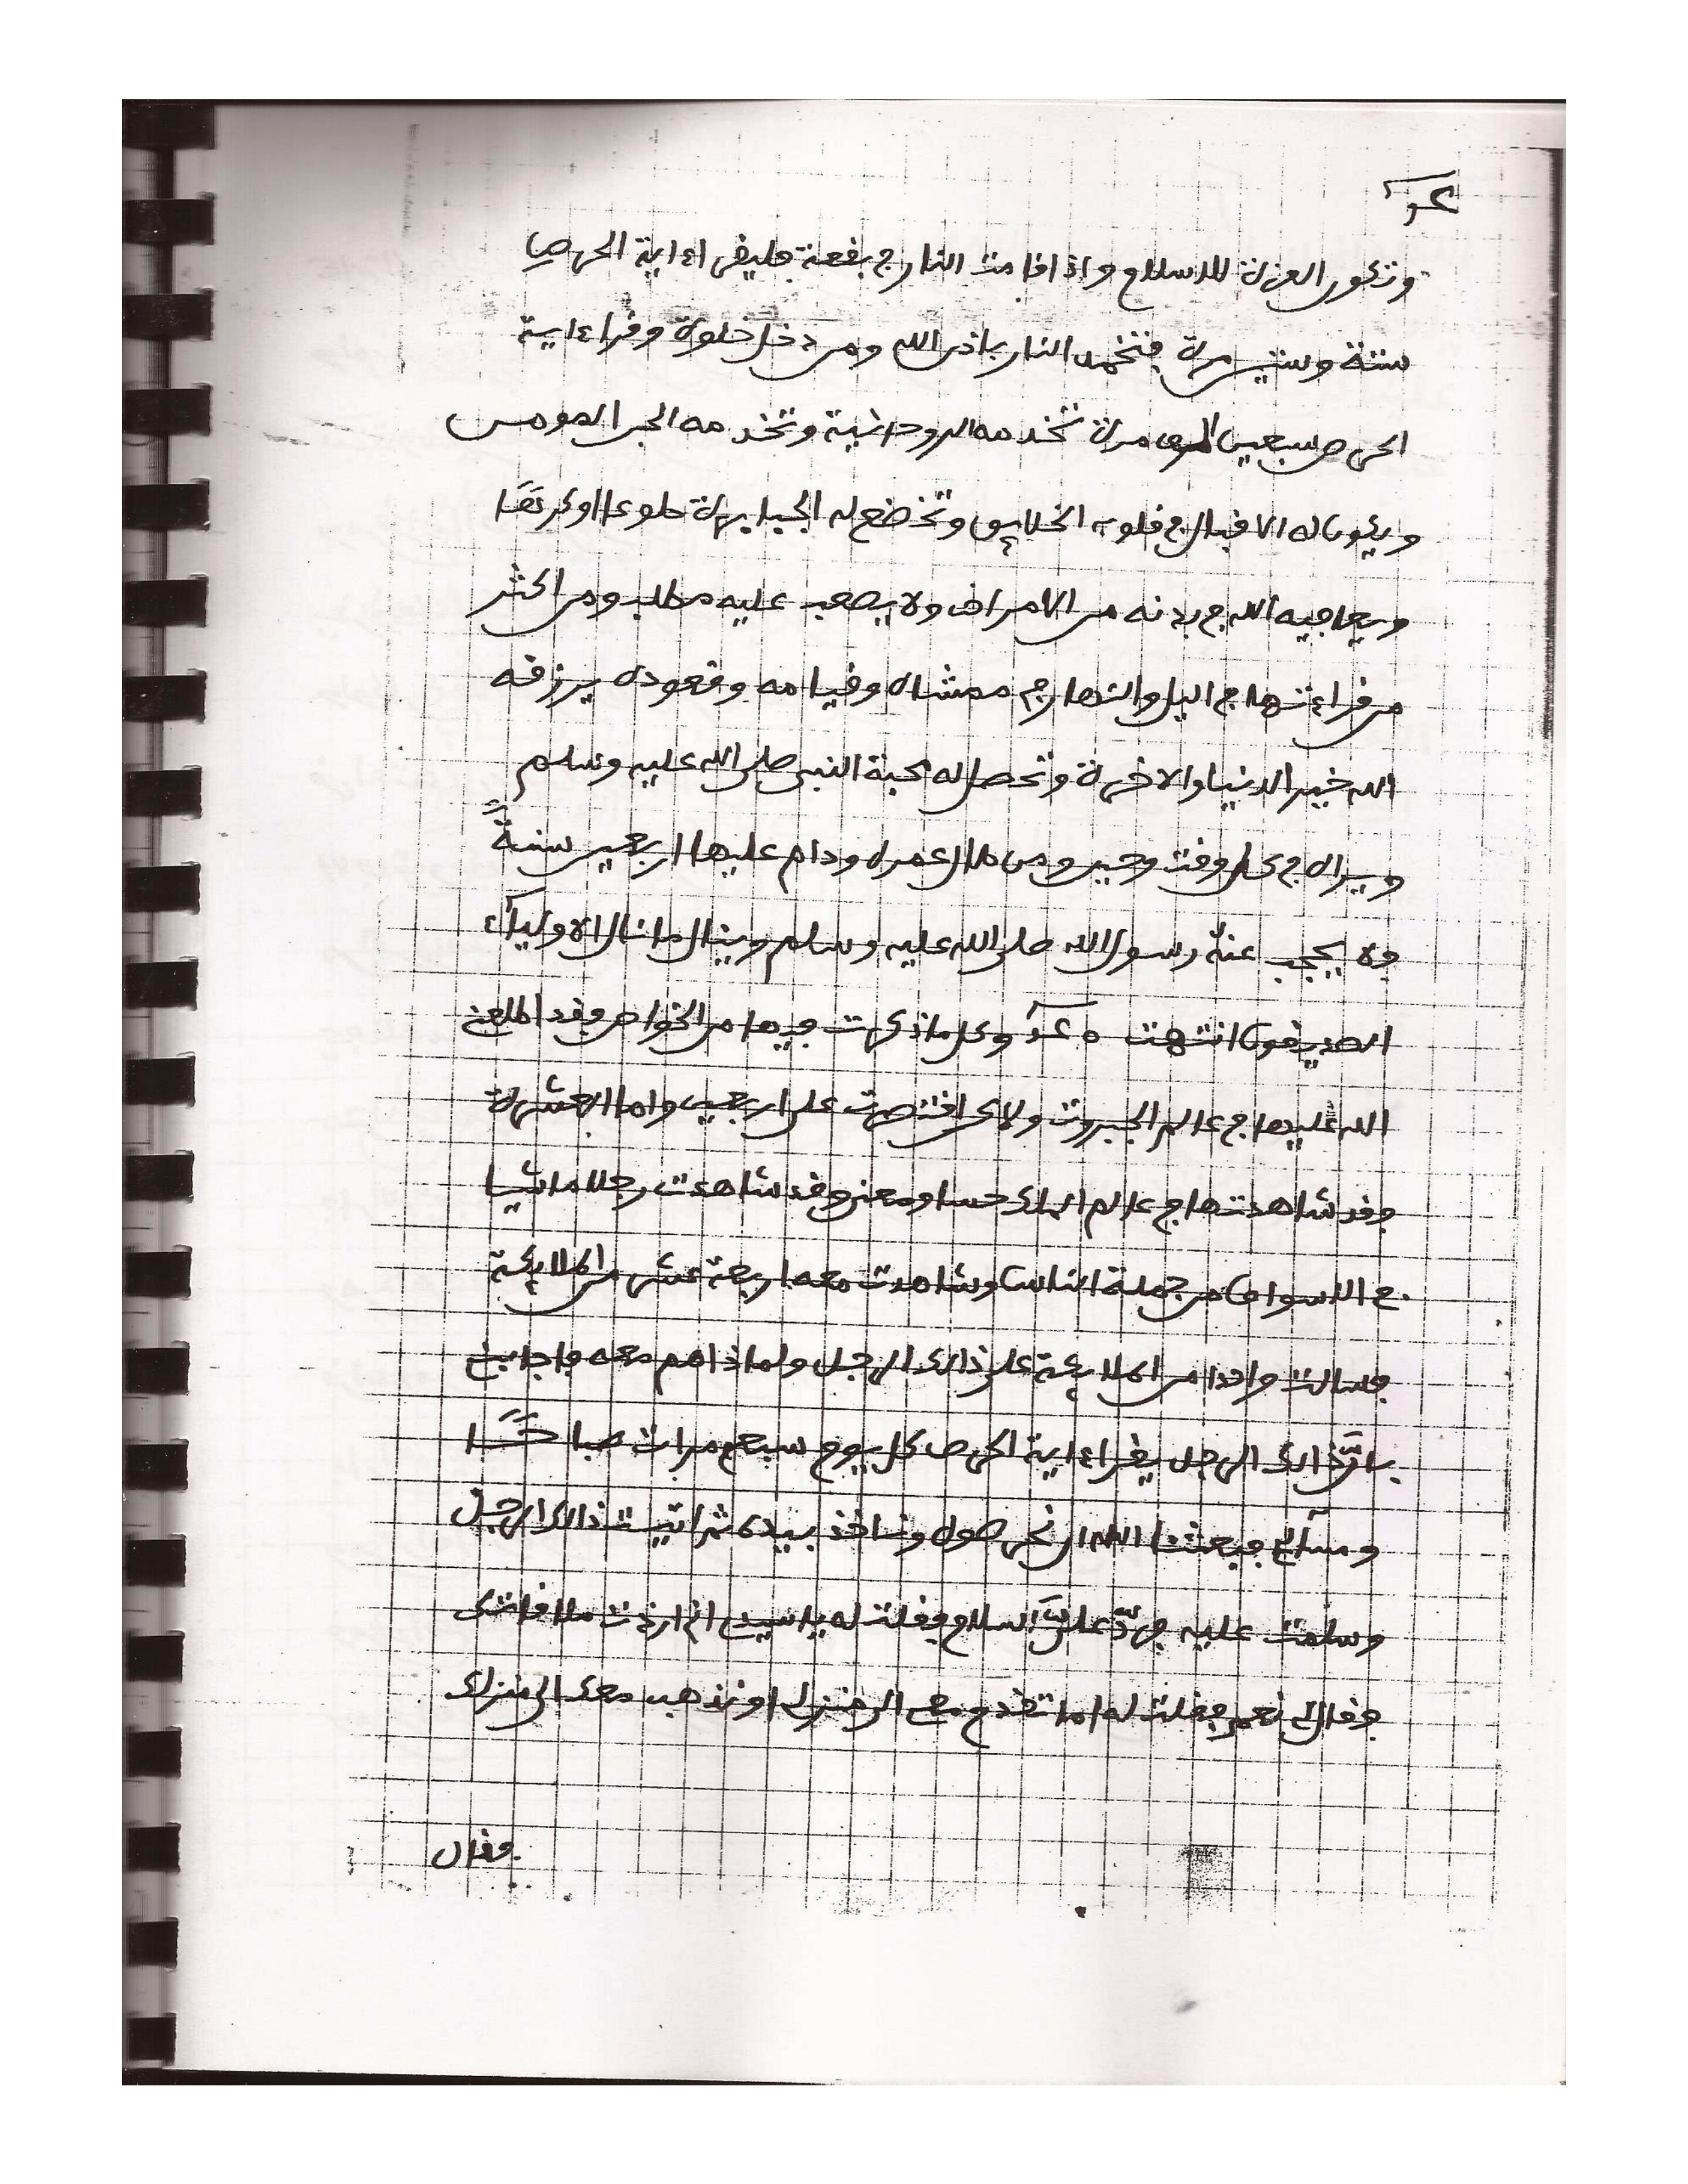 وتكون العزة للاسلام واذا قامت النار في بقعة فليقرا ءاية الحرص
ستة وستين مرة فتخمد النار باذن الله ومن دخل خلوة وقرا ءاية
الحرص سبعين الف مرة تخدمه الروحانية وتخدمه الجن المومن
ويكون له الاقبال في قلوب الخلايق وتخضع له الجبابرة طوعا او كرها
ويعافيه الله في بدنه من الامراض ولا يصعب عليه مطلب ومن اكثر
من قراءتها في اليل والنهار في ممشاه وقيامه وقعوده يرزقه
الله خير الدنيا والاخرة وتحصل له محبة النبي صلى الله عليه وسلم
ويراه في كل وقت وحين ومن طال عمره ودام عليها اربعين سنة
ولا يحجب عنه رسول الله صلى الله عليه وسلم وينال ما نال الاولياء
الصديقون انتهت ه وكل ما ذكرت فيها من الخواص وقد اطلعني
الله عليها في عالم الجبروت ولاكن اقتصرت على اربعين واما العشرة
فقد شاهدتها في عالم الملك حسا ومعنى وقد شاهدت رجلا ماشيا
في الاسواق من جملة الناس وشاهدت معه اربعة عشر من الملايكة
فسالت واحدا من الملايكة على ذالك الرجل ولماذا هم معه فاجابني
بان ذالك الرجل يقرا ءاية الحرص كل يوم سبع مرات صباحا
ومساء فبعثنا الله ان نحرصوه وناخذ بيده ثم اتيت ذالك الرجل
وسلمت عليه فرد علي السلام فقلت له يا سيدي اني اردت ملاقاتك
فقال لي نعم فقلت له اما تقدم معي الى منزلي او نذهب معك الى منزلك
فقال